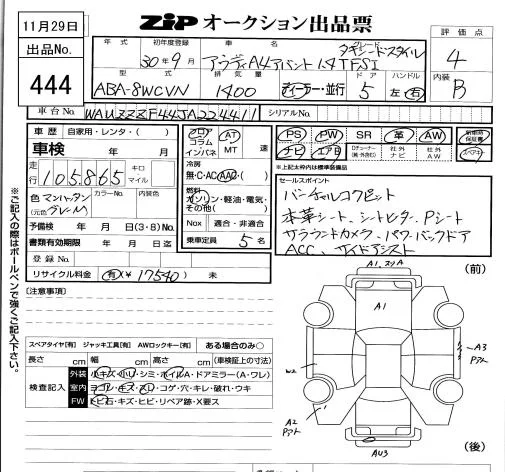 11月29日
出品No.
444
ZiP オークション出品票
評価点
4
内装
B
年式 初年度登録 車名
30年9月 アウディA4アバント 1.4TFSI
タキシードスタイル
型式 排気量 ドア ハンドル
ABA-8WCVN 1400 ディーラー・並行 5 左 右
車台No. WAUZZZF44JA224411 シリアルNo.
車歴 自家用・レンタ・( )
車検 年 月
走行 105865 キロ マイル
色 マンハッタングレーM カラーNo. 内装色
(元色)
予備検 年 月(3・8)No.
書類有効期限 年 月 日迄
登録No.
リサイクル料金 有(¥17540) 未
フロア コラム インパネ AT MT 速
冷房
無・C・AC・AAC・( )
燃料
ガソリン・軽油・電気・その他( )
Nox 適合・非適合
乗車定員 5名
PS PW SR 革 AW
ナビ エアB Dチューナー 社外ナビ 社外AW
※上記太枠内は標準装備品
新車時保証書
セールスポイント
バーチャルコクピット
本革シート、シートヒーター、Pシート
サラウンドカメラ、パワーバックドア
ACC、サイドアシスト
【注意事項】
※ご記入の際はボールペンで強くご記入下さい。
スペアタイヤ[有] ジャッキ工具[有] AWロックキー[有] ある場合のみ○
長さ cm 幅 cm 高さ cm (車検証上の寸法)
検査記入
外装 小キズ・小U・シミ・ホイルA・ドアミラー(A・ワレ)
室内 ヨゴレ・キズ・スレ・コゲ・穴・キレ・破れ・ウキ
FW トビ石・キズ・ヒビ・リペア跡・X要ス
(前)
A1
A1
A3
W2
A2
AU3
(後)